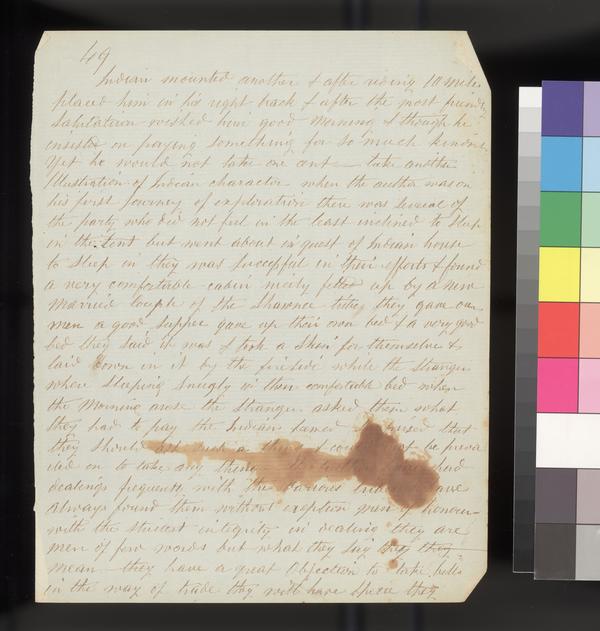 49
Indian mounted another & after riding 10 miles
placed him in his right track & after the most friendly
Salutation wished him good Morning & though he
insisted on paying something for so much kindness
yet he would not take one cent — take another
Illustration of Indian character when the author was on
his first Journey of exploration there was several of
the party who did not feel in the least inclined to Sleep
in the tent but went about in quest of Indian house
to Sleep in they was Successful in their efforts & found
a very comfortable cabin nicely fitted up by a new
married Couple of the Shawnee tribe they gave our
men a good Supper gave up their own bed & a very good
bed they said it was & took a Skin for themselves &
laid down in it by the fireside while the Stranger
where Sleeping Snugly in their comfortable bed when
the Morning arose the Stranger asked them what
they had to pay the Indians seemed surprised that
they should ask such a thing & could not be preva
iled on to take any thing the had
dealings frequently with the various Indians have
Always found them without exception men of honour
with the strictest integrity in dealing they are
men of few words but what they say they they
mean — they have a great Objection to take bills
in the way of trade they will have specie they